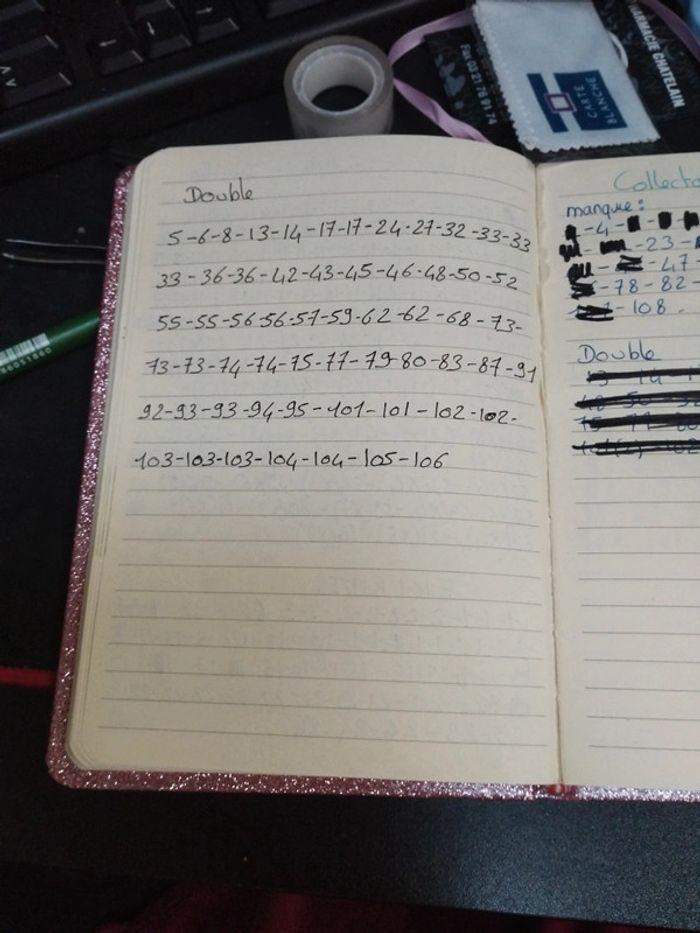 Double
5-6-8-13-14-17-17-24-27-32-33-33
33-36-36-42-43-45-46-48-50-52
55-55-56-56-57-59-62-62-68-73-
73-73-74-74-75-77-79-80-83-87-91
92-93-93-94-95-101-101-102-102-
103-103-103-104-104-105-106
manque:
-4-
-23-
-47-
-78-82-
-108.
Double
PHARMACIE CHATELAIN
CARTE
BLANCHE